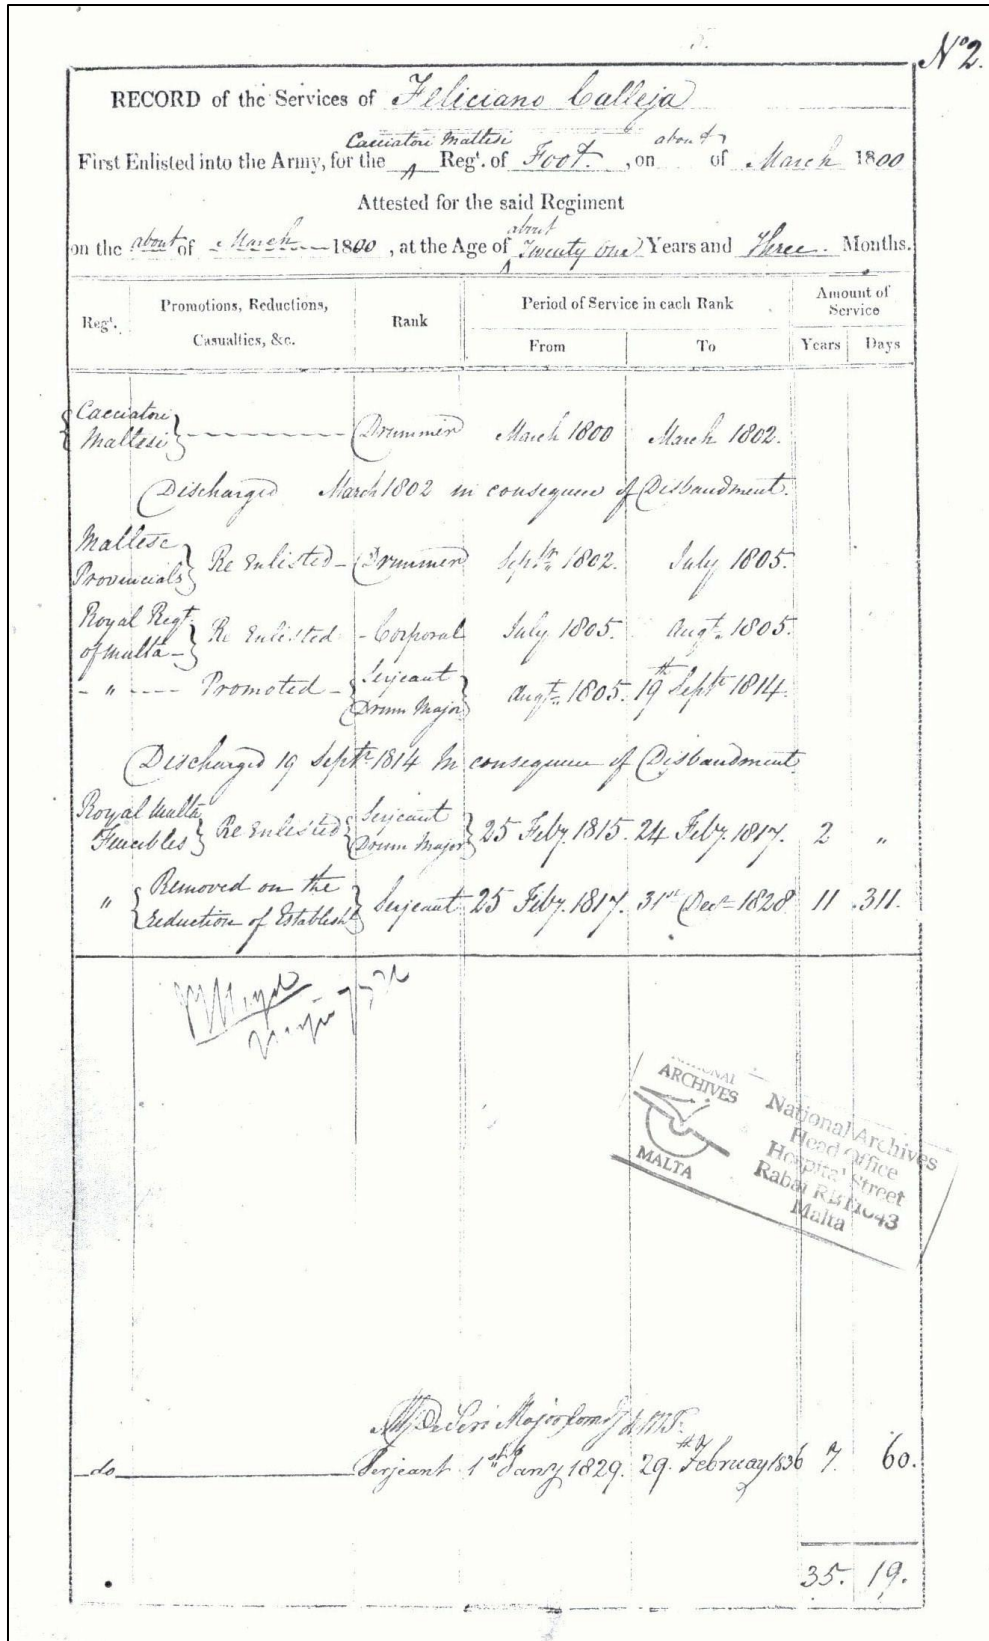 Nº 2.
RECORD of the Services of Feliciano Calleja
Cacciatori Maltesi about
First Enlisted into the Army, for the Regt. of Foot, on of March 1800
Attested for the said Regiment
about
on the about of March 1800, at the Age of Twenty One Years and Three Months.
Regt. Promotions, Reductions, Casualties, &c. Rank Period of Service in each Rank Amount of Service
From To Years Days
{Cacciatori Maltesi} Drummer March 1800 March 1802.
Discharged March 1802 in consequence of Disbandment.
Maltese Provincials} Re Enlisted - Drummer Septr. 1802. July 1805.
Royal Regt. of Malta -} Re Enlisted - Corporal July 1805. Augt. 1805.
- " ---- Promoted - {Serjeant Drum Major} Augt. 1805. 19th Septr 1814.
Discharged 19 Septr. 1814 In consequence of Disbandment
Royal Malta Fencibles} Re Enlisted {Serjeant Drum Major} 25 Feby. 1815. 24 Feby. 1817. 2 "
" {Removed on the reduction of Establisht} Serjeant 25 Feby. 1817. 31st Decr 1828 11 .311.
NATIONAL
ARCHIVES
MALTA
National Archives
Head Office
Hospital Street
Rabat RBT1043
Malta
Major
do Serjeant 1st Jany 1829. 29th February 1836 7. 60.
35. 19.